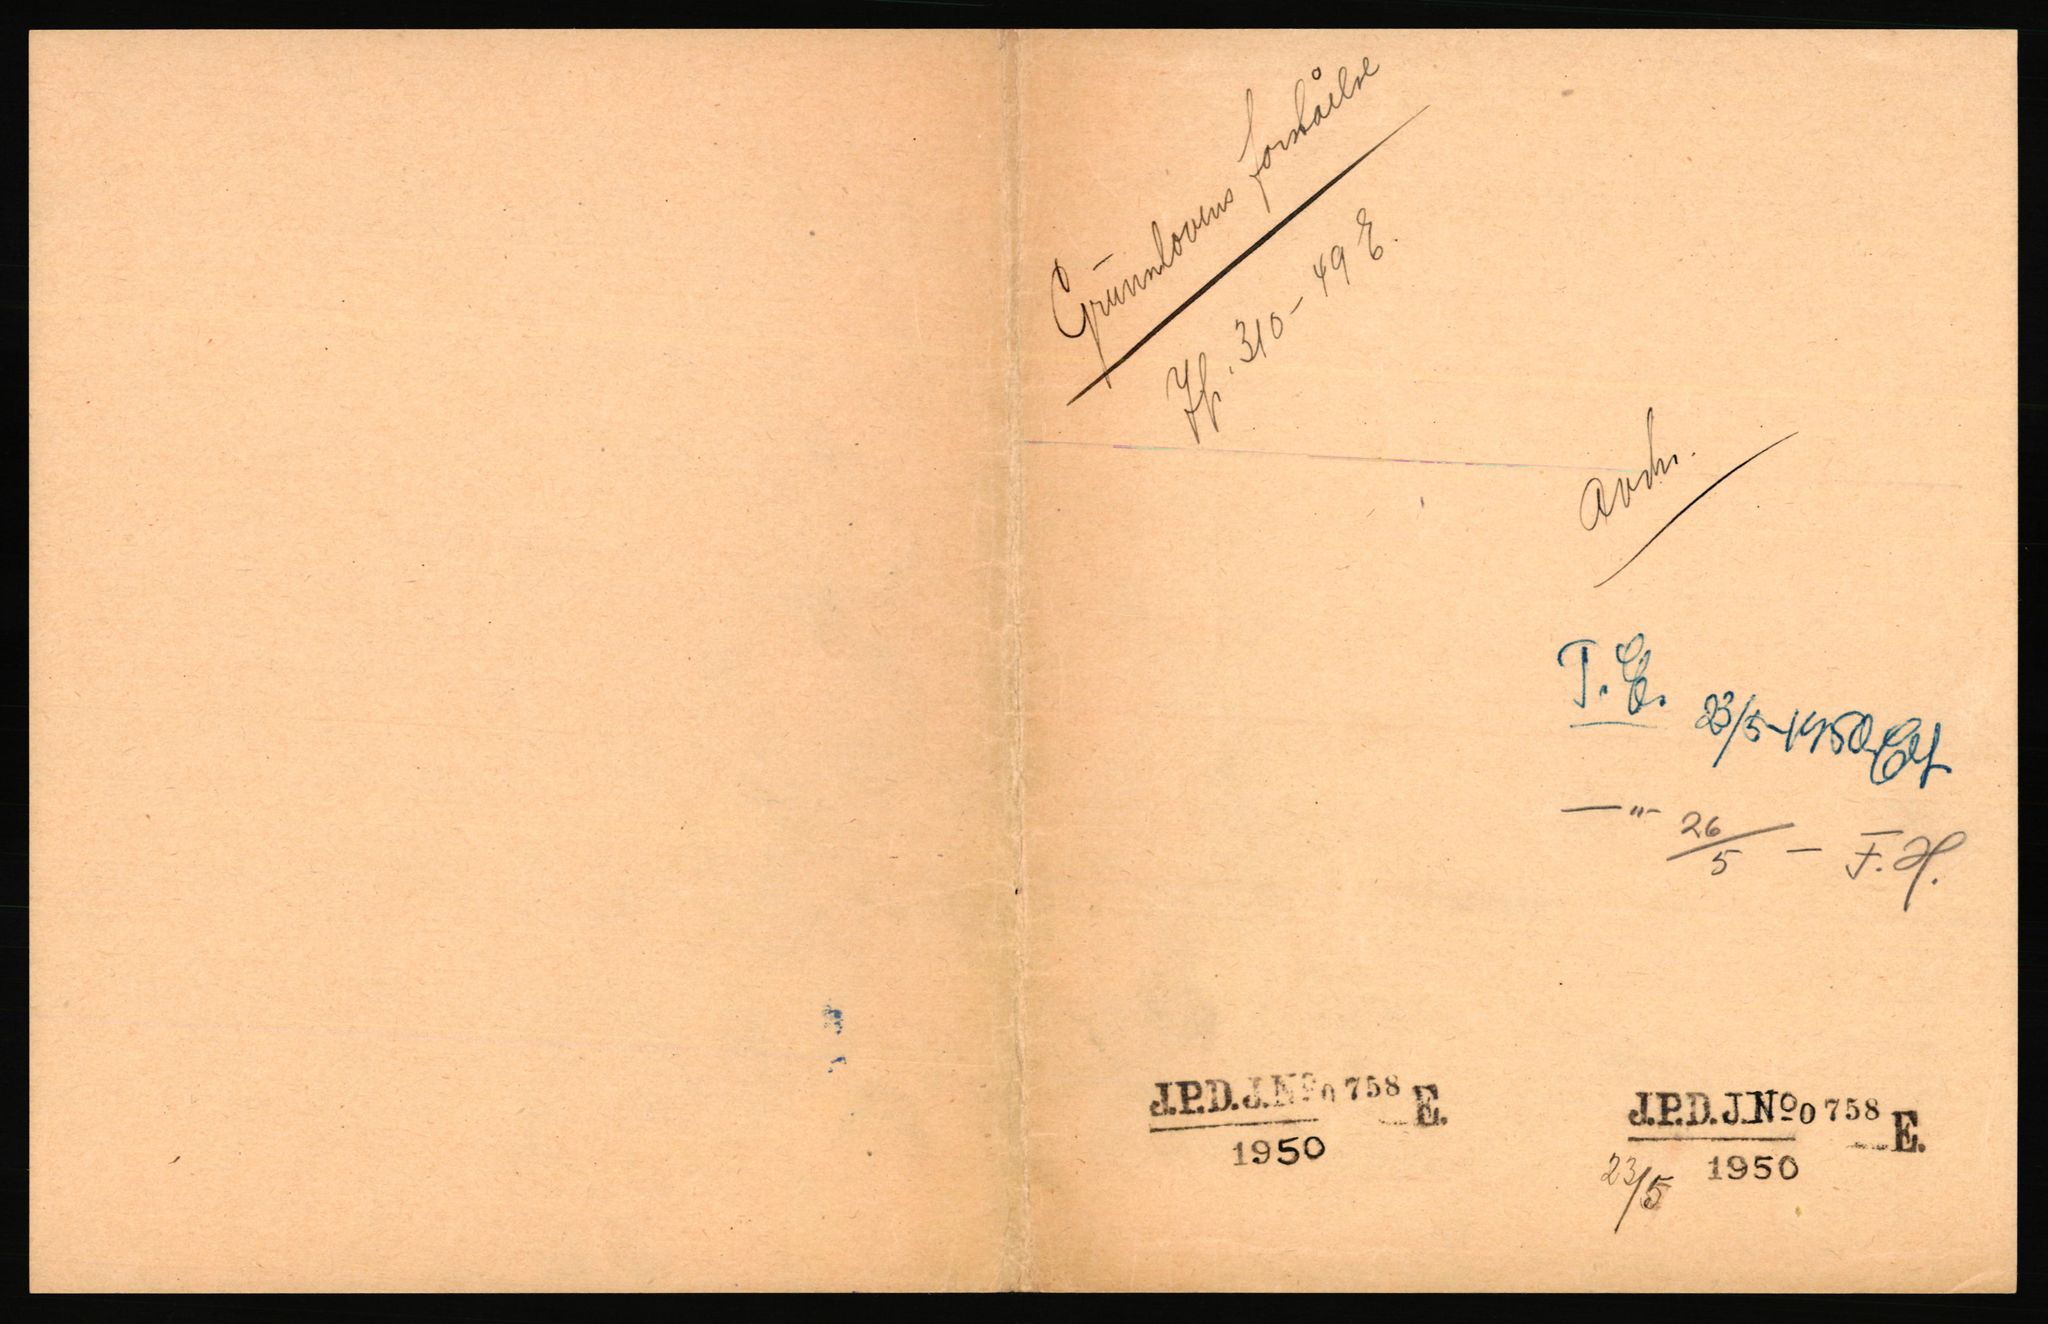 Grunnlovens forståelse
Jfr. 310-49 E.
Avdr.
T.E. 23/5-1950
—"— 26/5 — F.H.
J.P.D. J.Nº 0758 E.
1950
J.P.D. J.Nº 0758 E.
1950
23/5